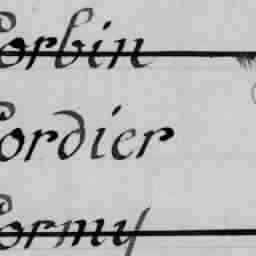 Corbin
Cordier
Cormy